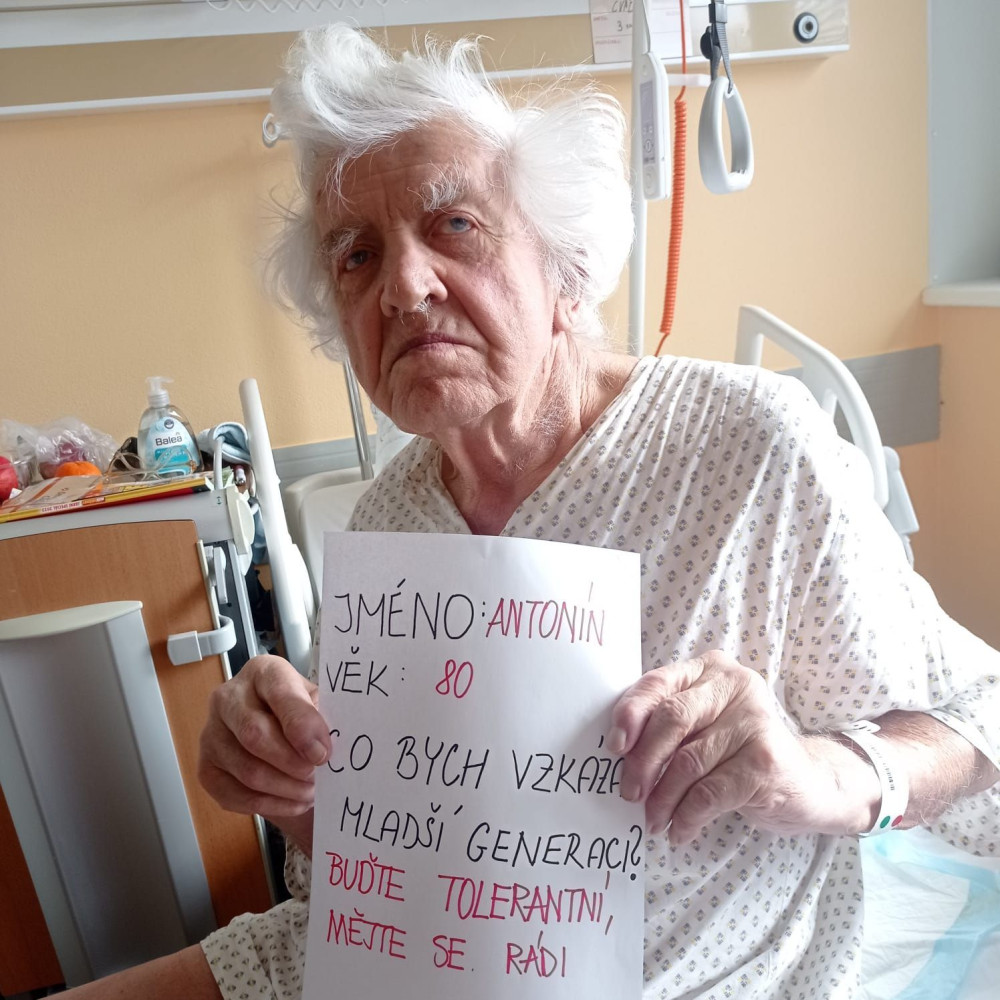 JMÉNO: ANTONÍN
VĚK: 80
CO BYCH VZKÁZA
MLADŠÍ GENERACI?
BUĎTE TOLERANTNÍ,
MĚJTE SE RÁDI
Balea